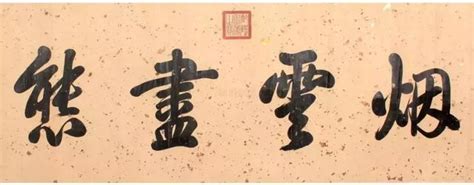 烟雲盡態